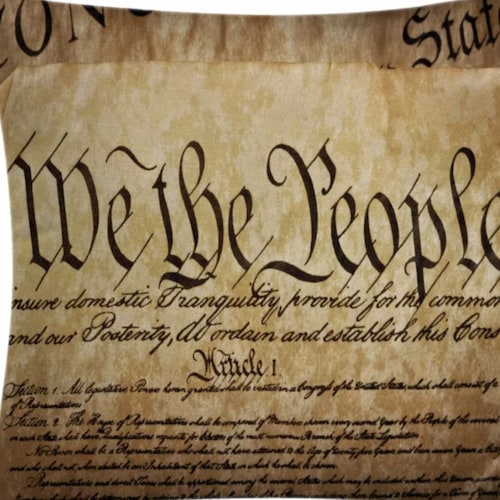 CON
Stat
We the People
insure domestic Tranquility, provide for the common
and our Posterity, do ordain and establish this Cons
Article I.
Section 1. All legislative Powers herein granted shall be vested in a Congress of the United States, which shall consist of a
of Representatives.
Section 2. The House of Representatives shall be composed of Members chosen every second Year by the People of the several
in each State shall have Qualifications requisite for Electors of the most numerous Branch of the State Legislature.
No Person shall be a Representative who shall not have attained to the Age of twenty five Years and been seven Years
and who shall not, when elected, be an Inhabitant of that State in which he shall be chosen.
Representatives and direct Taxes shall be apportioned among the several States which may be included within this